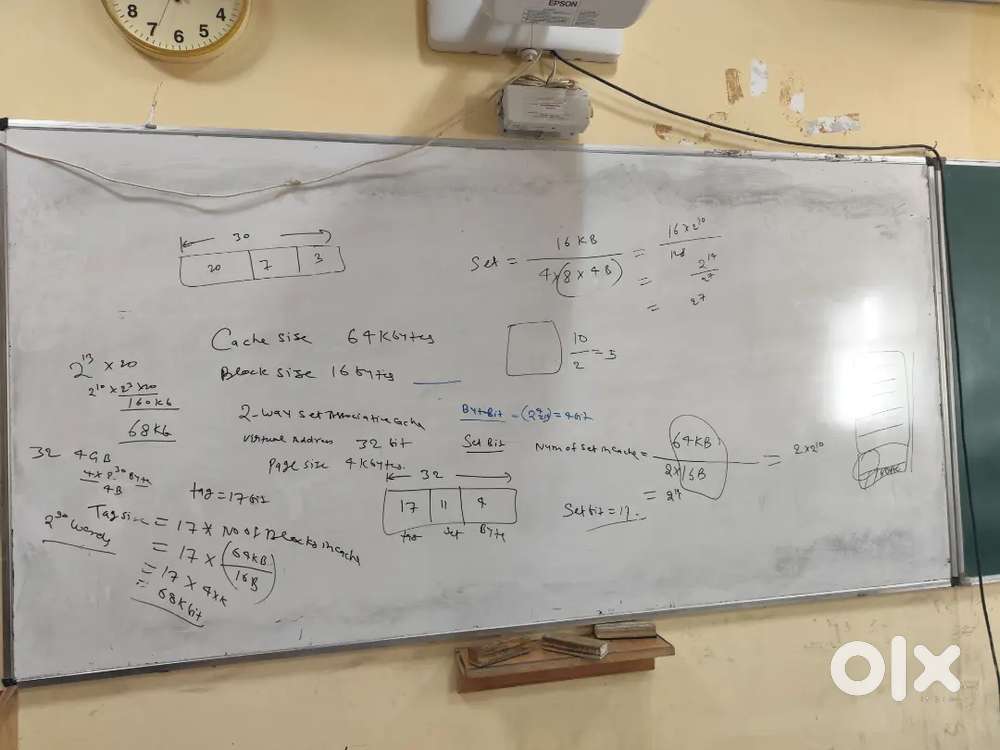 8 4
7 6 5
EPSON
30
20 7 3
Set = 16 KB / 4 x (8 x 4B) = 16 x 2^10 / 128
= 2^14 / 2^7
= 2^7
Cache size 64 Kbytes
Block size 16 bytes
10 / 2 = 5
2^13 x 20
2^10 x 2^3 x 20
160Kb
68Kb
2-way set Associative cache
Virtual Address 32 bit
Page size 4 Kbytes
Byte Bit
= 4 bit
Set Bit
Num of set in cache = 64KB / 2 x 16B = 2 x 2^10
= 2^11
Set bit = 11
32 4GB
4B
2^30 Words
tag = 17 bits
32
17 11 4
tag set Byte
Tag size = 17 x No of Blocks in cache
= 17 x (64KB / 16B)
= 17 x 4 x K
= 68 K bit
olx